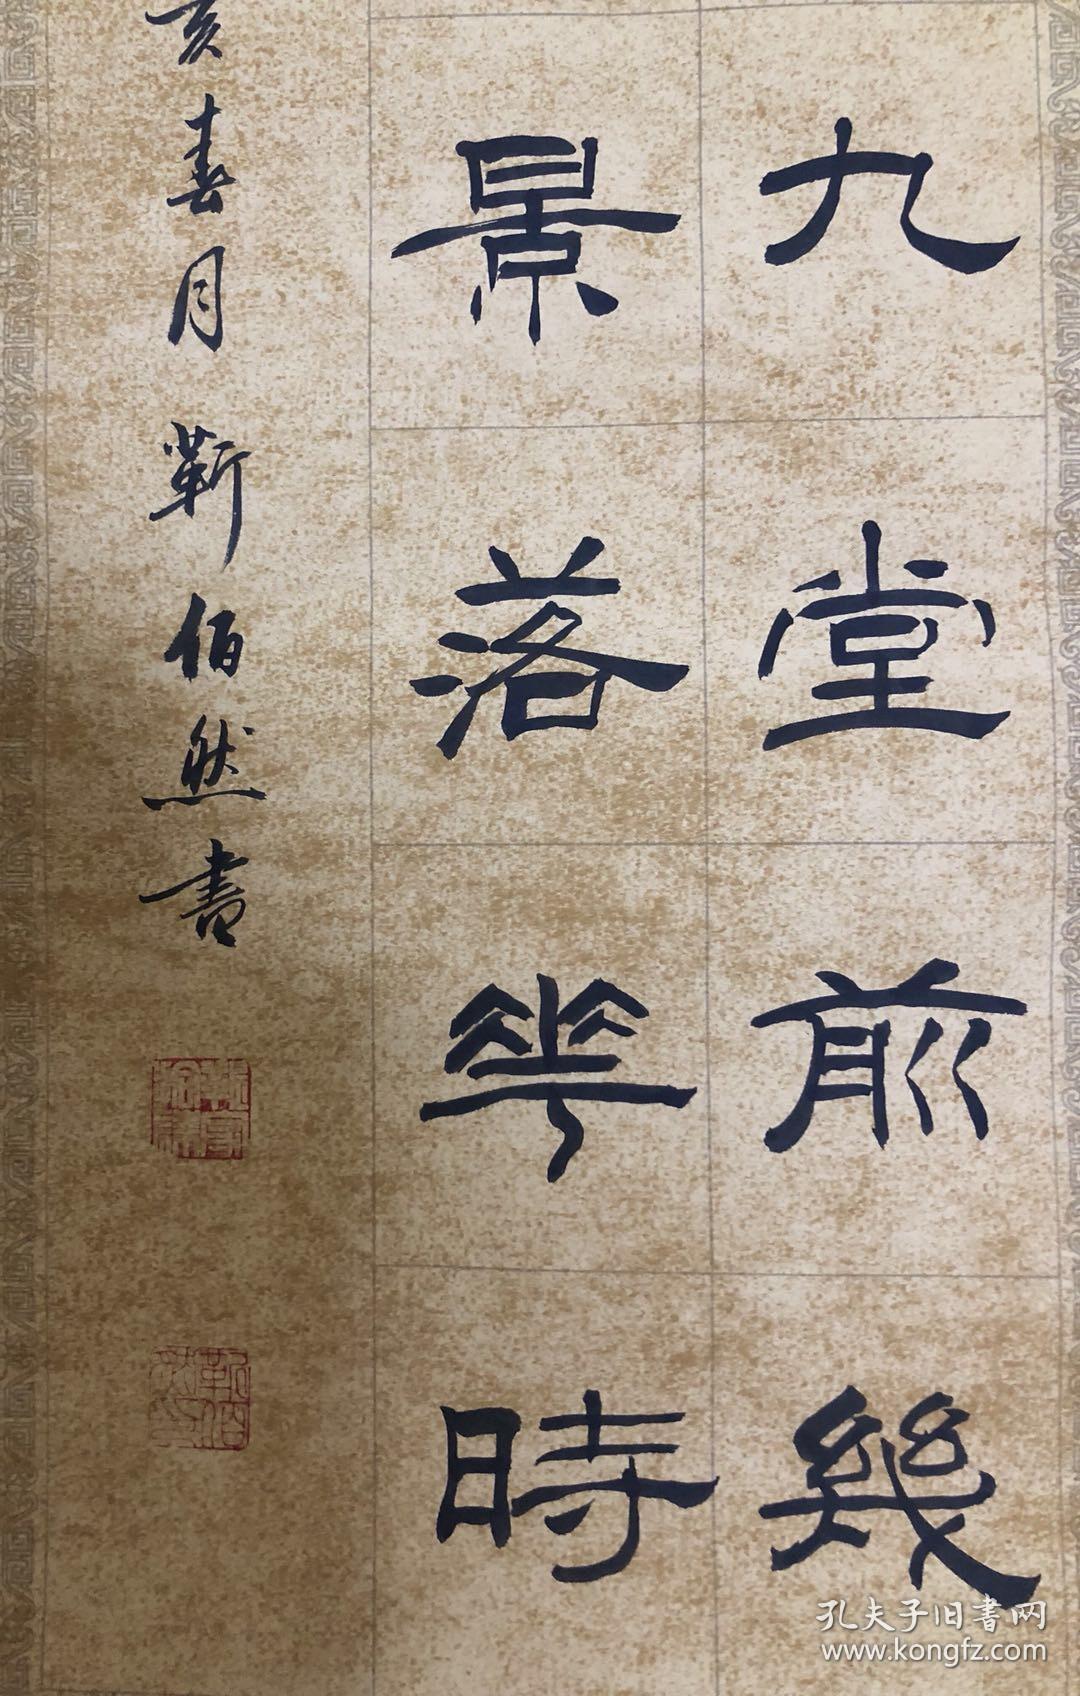 九堂前幾
景落花時
亥春月靳伯然書
孔夫子旧書网
www.kongfz.com